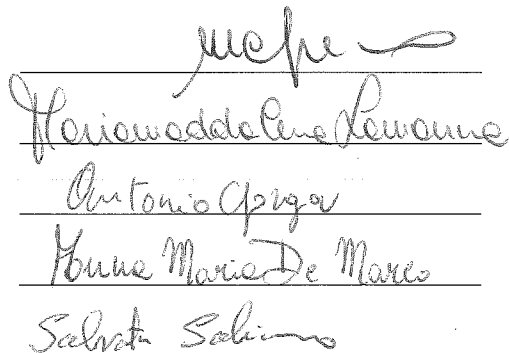 Mariamaddalena Lamanna
Antonio Gorga
Anna Maria De Marco
Salvatr Sabino